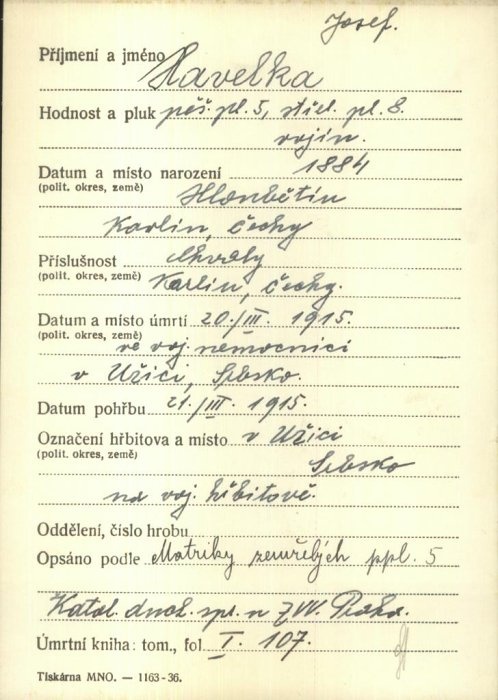 Josef.
Příjmení a jméno Havelka
Hodnost a pluk pěš. pl. 5, střel. pl. 8.
vojín.
Datum a místo narození 1884
(polit. okres, země) Hloubětín
Karlín, Čechy
Příslušnost Chvaly
(polit. okres, země) Karlín, Čechy.
Datum a místo úmrtí 20./III. 1915.
(polit. okres, země) ve voj. nemocnici
v Užici, Srbsko.
Datum pohřbu 21./III. 1915.
Označení hřbitova a místo v Užici
(polit. okres, země) Srbsko
na voj. hřbitově.
Oddělení, číslo hrobu
Opsáno podle Matriky zemřelých ppl. 5
Katol. duch. spr. n ZVV. Praha.
Úmrtní kniha: tom., fol I. 107.
Tiskárna MNO. — 1163-36.